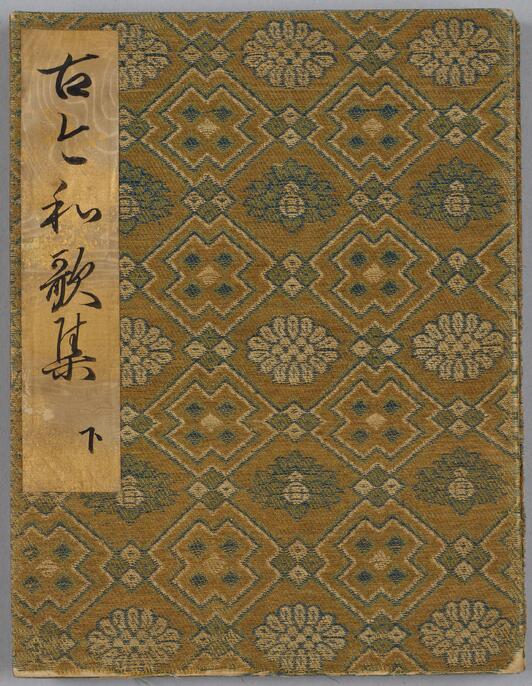 古今和歌集
下